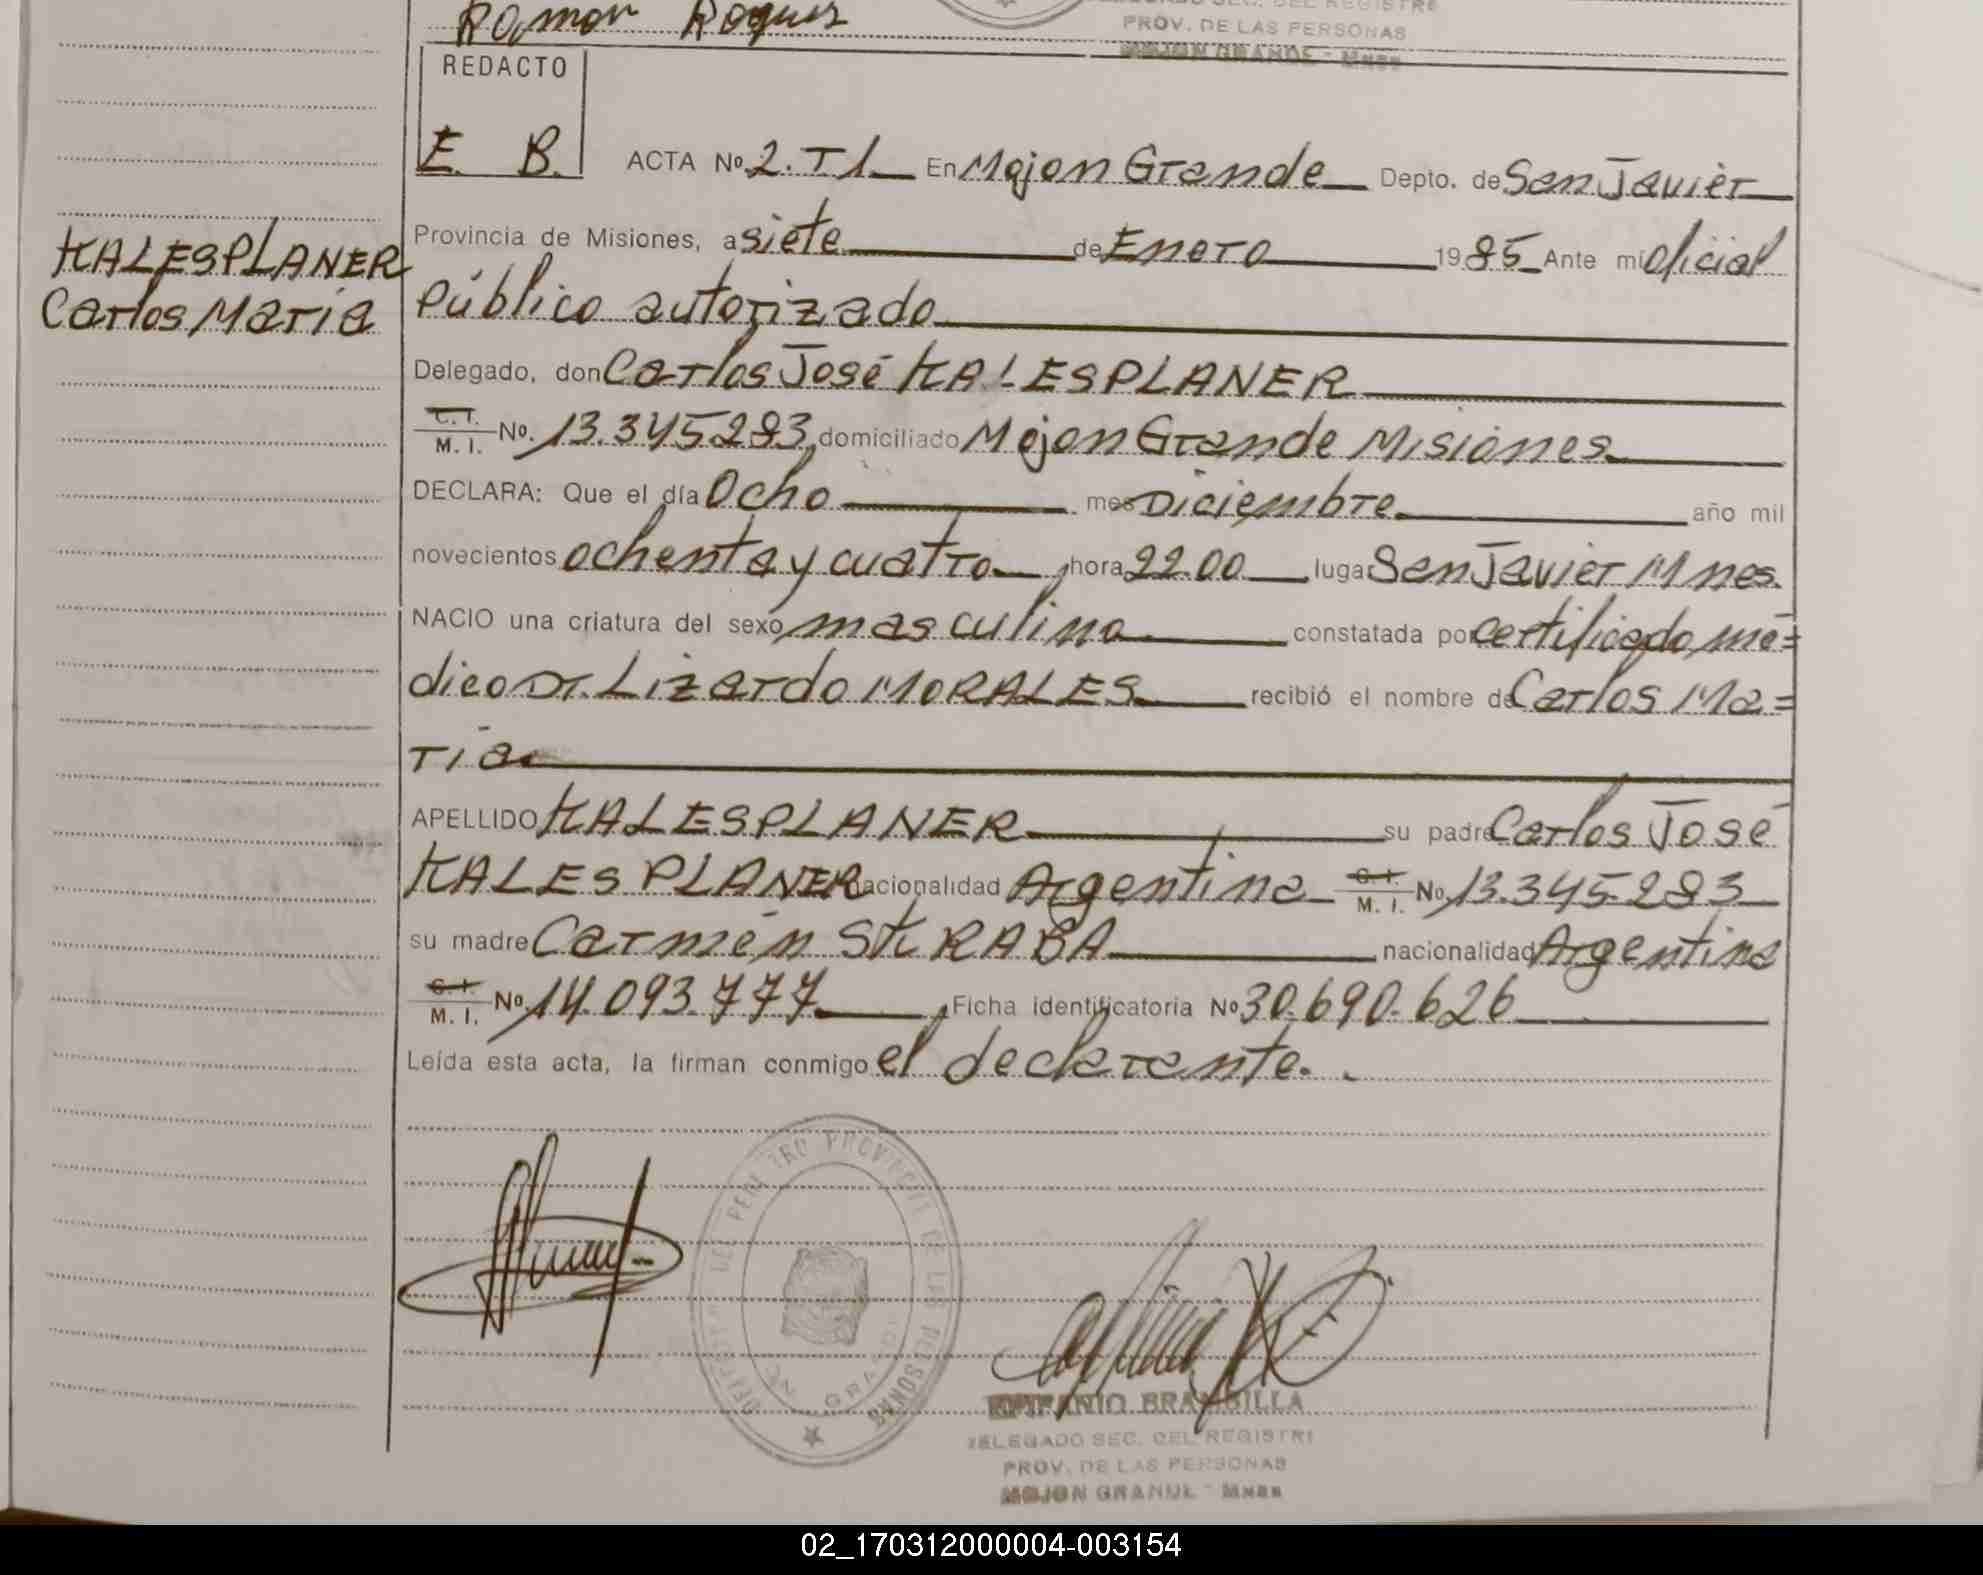 Ramon Roques
PROV. DE LAS PERSONAS
MOJON GRANDE - Mnes
REDACTO
E. B.
ACTA No 2. T1 En Mojon Grande Depto. de San Javier
Provincia de Misiones, a siete de Enero 1985 Ante mi oficial
KALESPLANER
Carlos María
Público autorizado
Delegado, don Carlos José KALESPLANER
C. I.
M. I. No. 13.345.283, domiciliado Mojon Grande Misiones
DECLARA: Que el día Ocho mes Diciembre año mil
novecientos ochenta y cuatro, hora 22.00 lugar San Javier Mnes.
NACIO una criatura del sexo masculino constatada por certificado mé=
dico Dr. Lizardo MORALES recibió el nombre de Carlos Ma=
ría
APELLIDO KALESPLANER su padre Carlos José
KALESPLANER nacionalidad Argentina C. I. M. I. No. 13.345.283
su madre Carmen SKRABA nacionalidad Argentina
C. I.
M. I. No. 14.093.777, Ficha identificatoria No 30.690.626
Leída esta acta, la firman conmigo el declarante.
PROVINCIAL DE LAS PERSONAS
EPIFANIO BRAMBILLA
DELEGADO SEC. DEL REGISTRO
PROV. DE LAS PERSONAS
MOJON GRANDE - Mnes
02_170312000004-003154